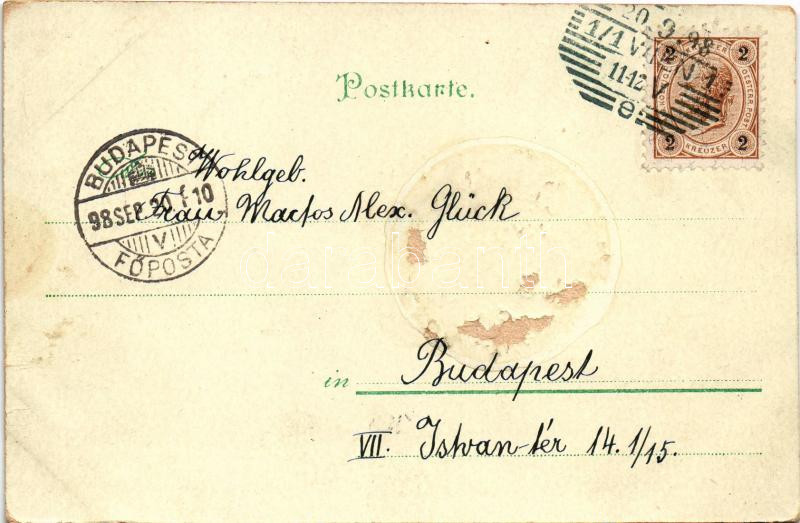 Postkarte.
20.9.98
1/1 WIEN 1
11-12 V
e
2 KREUZER 2
OESTERR. POST
2 KREUZER 2
BUDAPEST
98 SEP 20
10
V
FŐPOSTA
Wohlgeb.
Frau Martos Alex. Glück
in Budapest
VII. Istvan-tér 14. 1/15.